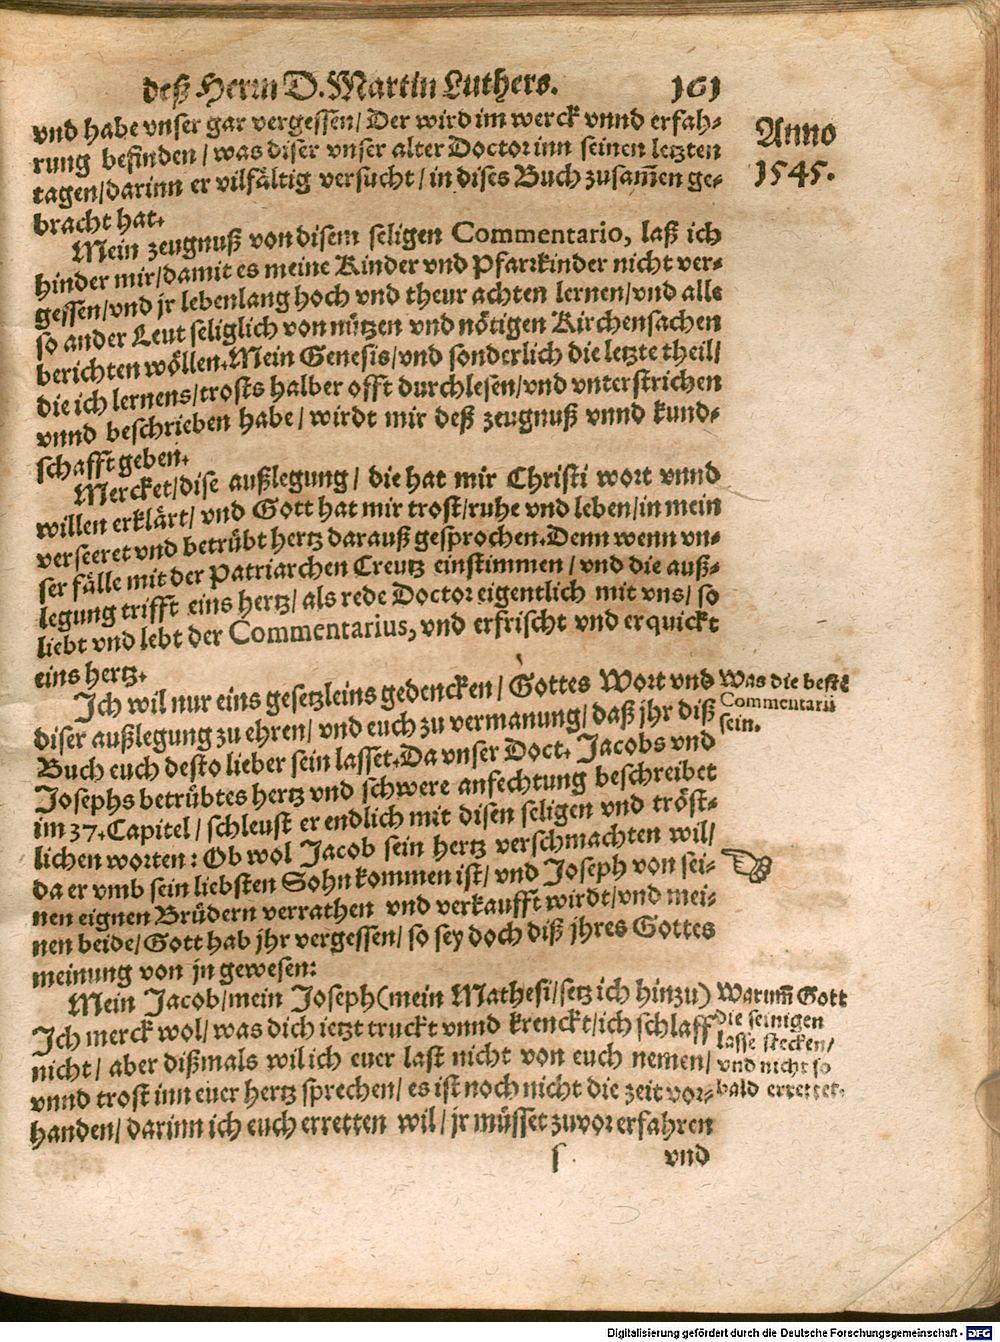 deß Herrn D. Martin Luthers. 161
vnd habe vnser gar vergessen/ Der wird im werck vnnd erfah-
rung befinden/ was diser vnser alter Doctor inn seinen letzten
tagen/ darinn er vilfältig versucht/ in dises Buch zusam̄en ge-
bracht hat.
Anno
1545.
Mein zeugnuß von disem seligen Commentario, laß ich
hinder mir/ damit es meine Kinder vnd Pfarrkinder nicht ver-
gessen/ vnd jr lebenlang hoch vnd theur achten lernen/ vnd alle
so ander Leut seliglich von nützen vnd nötigen Kirchensachen
berichten wöllen. Mein Genesis/ vnd sonderlich die letzte theil/
die ich lernens/ trosts halber offt durchlesen/ vnd vnterstrichen
vnnd beschrieben habe/ wirdt mir deß zeugnuß vnnd kund-
schafft geben.
Mercket/ dise außlegung/ die hat mir Christi wort vnnd
willen erklärt/ vnd Gott hat mir trost/ ruhe vnd leben/ in mein
verseeret vnd betrübt hertz darauß gesprochen. Denn wenn vn-
ser fälle mit der Patriarchen Creutz einstimmen/ vnd die auß-
legung trifft eins hertz/ als rede Doctor eigentlich mit vns/ so
liebt vnd lebt der Commentarius, vnd erfrischt vnd erquickt
eins hertz.
Ich wil nur eins gesetzleins gedencken/ Gottes Wort vnd
diser außlegung zu ehren/ vnd euch zu vermanung/ daß jhr diß
Buch euch desto lieber sein lasset. Da vnser Doct. Jacobs vnd
Josephs betrübtes hertz vnd schwere anfechtung beschreibet
im 37. Capitel/ schleust er endlich mit disen seligen vnd tröst-
lichen worten: Ob wol Jacob sein hertz verschmachten wil/
da er vmb sein liebsten Sohn kommen ist/ vnd Joseph von sei-
nen eignen Brüdern verrathen vnd verkaufft wirdt/ vnd mei-
nen beide/ Gott hab jhr vergessen/ so sey doch diß jhres Gottes
meinung von jn gewesen:
Was die beste
Commentarii
sein.
Mein Jacob/ mein Joseph (mein Mathesi/ setz ich hinzu)
Ich merck wol/ was dich ietzt truckt vnnd krenckt/ ich schlaff
nicht/ aber dißmals wil ich euer last nicht von euch nemen/
vnnd trost inn euer hertz sprechen/ es ist noch nicht die zeit vor-
handen/ darinn ich euch erretten wil/ jr müsset zuvor erfahren
Warum̄ Gott
die seinigen
lasse stecken/
vnd nicht so
bald errettet.
s vnd
Digitalisierung gefördert durch die Deutsche Forschungsgemeinschaft - DFG